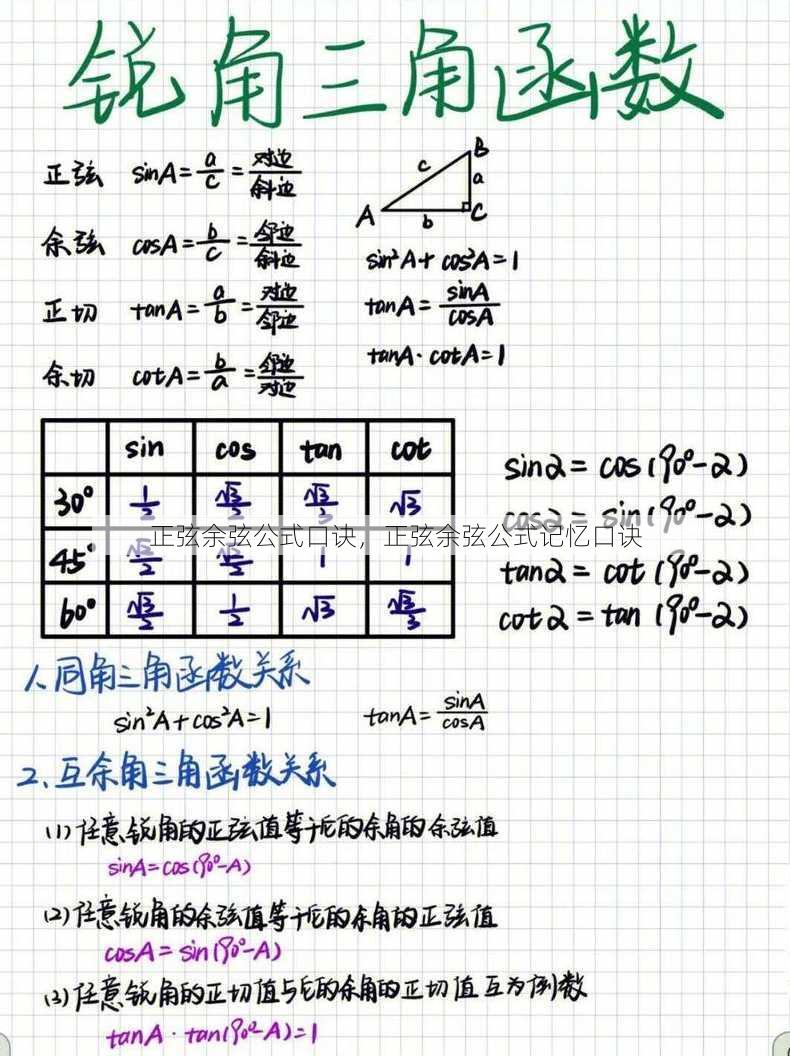 锐角三角函数
正弦 sinA=a/c=对边/斜边
余弦 cosA=b/c=邻边/斜边
正切 tanA=a/b=对边/邻边
余切 cotA=b/a=邻边/对边
B
c
a
A
b
C
sin²A+cos²A=1
tanA=sinA/cosA
tanA·cotA=1
sin cos tan cot
30° 1/2 √3/2 √3/3 √3
45° √2/2 √2/2 1 1
60° √3/2 1/2 √3 √3/3
sinα=cos(90°-α)
cosα=sin(90°-α)
tanα=cot(90°-α)
cotα=tan(90°-α)
正弦余弦公式口诀，正弦余弦公式记忆口诀
1、同角三角函数关系
sin²A+cos²A=1 tanA=sinA/cosA
2、互余角三角函数关系
(1)任意锐角的正弦值等于它的余角的余弦值
sinA=cos(90°-A)
(2)任意锐角的余弦值等于它的余角的正弦值
cosA=sin(90°-A)
(3)任意锐角的正切值与它的余角的正切值互为倒数
tanA·tan(90°-A)=1